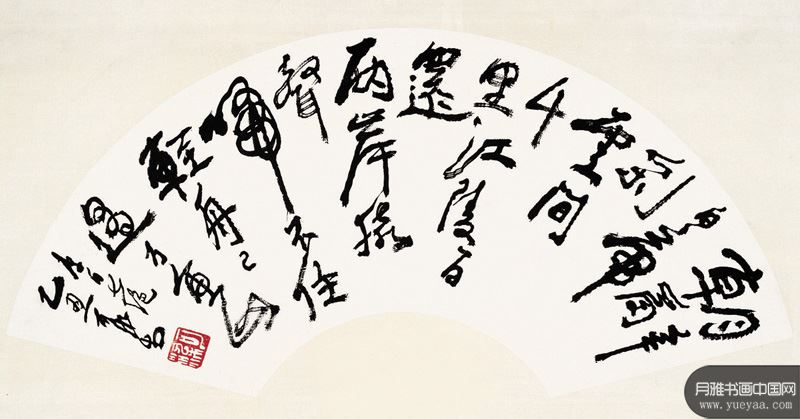 朝辭
白帝
彩
雲間
千
里江陵一日
還
兩岸猿
聲
啼不住
輕舟已
過万重山
己丑
月雅书画中国网
www.yueyaa.com